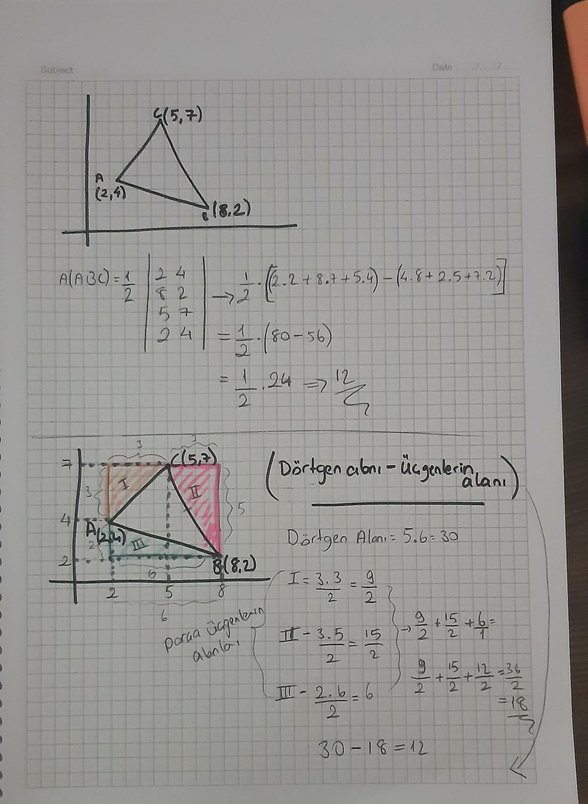 Subject
Date ..../..../....
C(5,7)
A
(2,4)
B (8,2)
A(ABC) = 1/2 | 2 4 | → 1/2 . [(2.2 + 8.7 + 5.4) - (4.8 + 2.5 + 7.2)]
8 2
5 7
2 4
= 1/2 . (80 - 56)
= 1/2 . 24 => 12
3 3
7 C(5,7)
(Dörtgen alanı - Üçgenlerin alanı)
3 I II 5
4 A(2,4)
2 III
2 B(8,2)
6
2 5 8
6
Dörtgen Alanı = 5.6 = 30
parça üçgenlerin
alanları
I = 3.3/2 = 9/2
II - 3.5/2 = 15/2
III - 2.6/2 = 6
→ 9/2 + 15/2 + 6/1 =
9/2 + 15/2 + 12/2 = 36/2
= 18
30 - 18 = 12